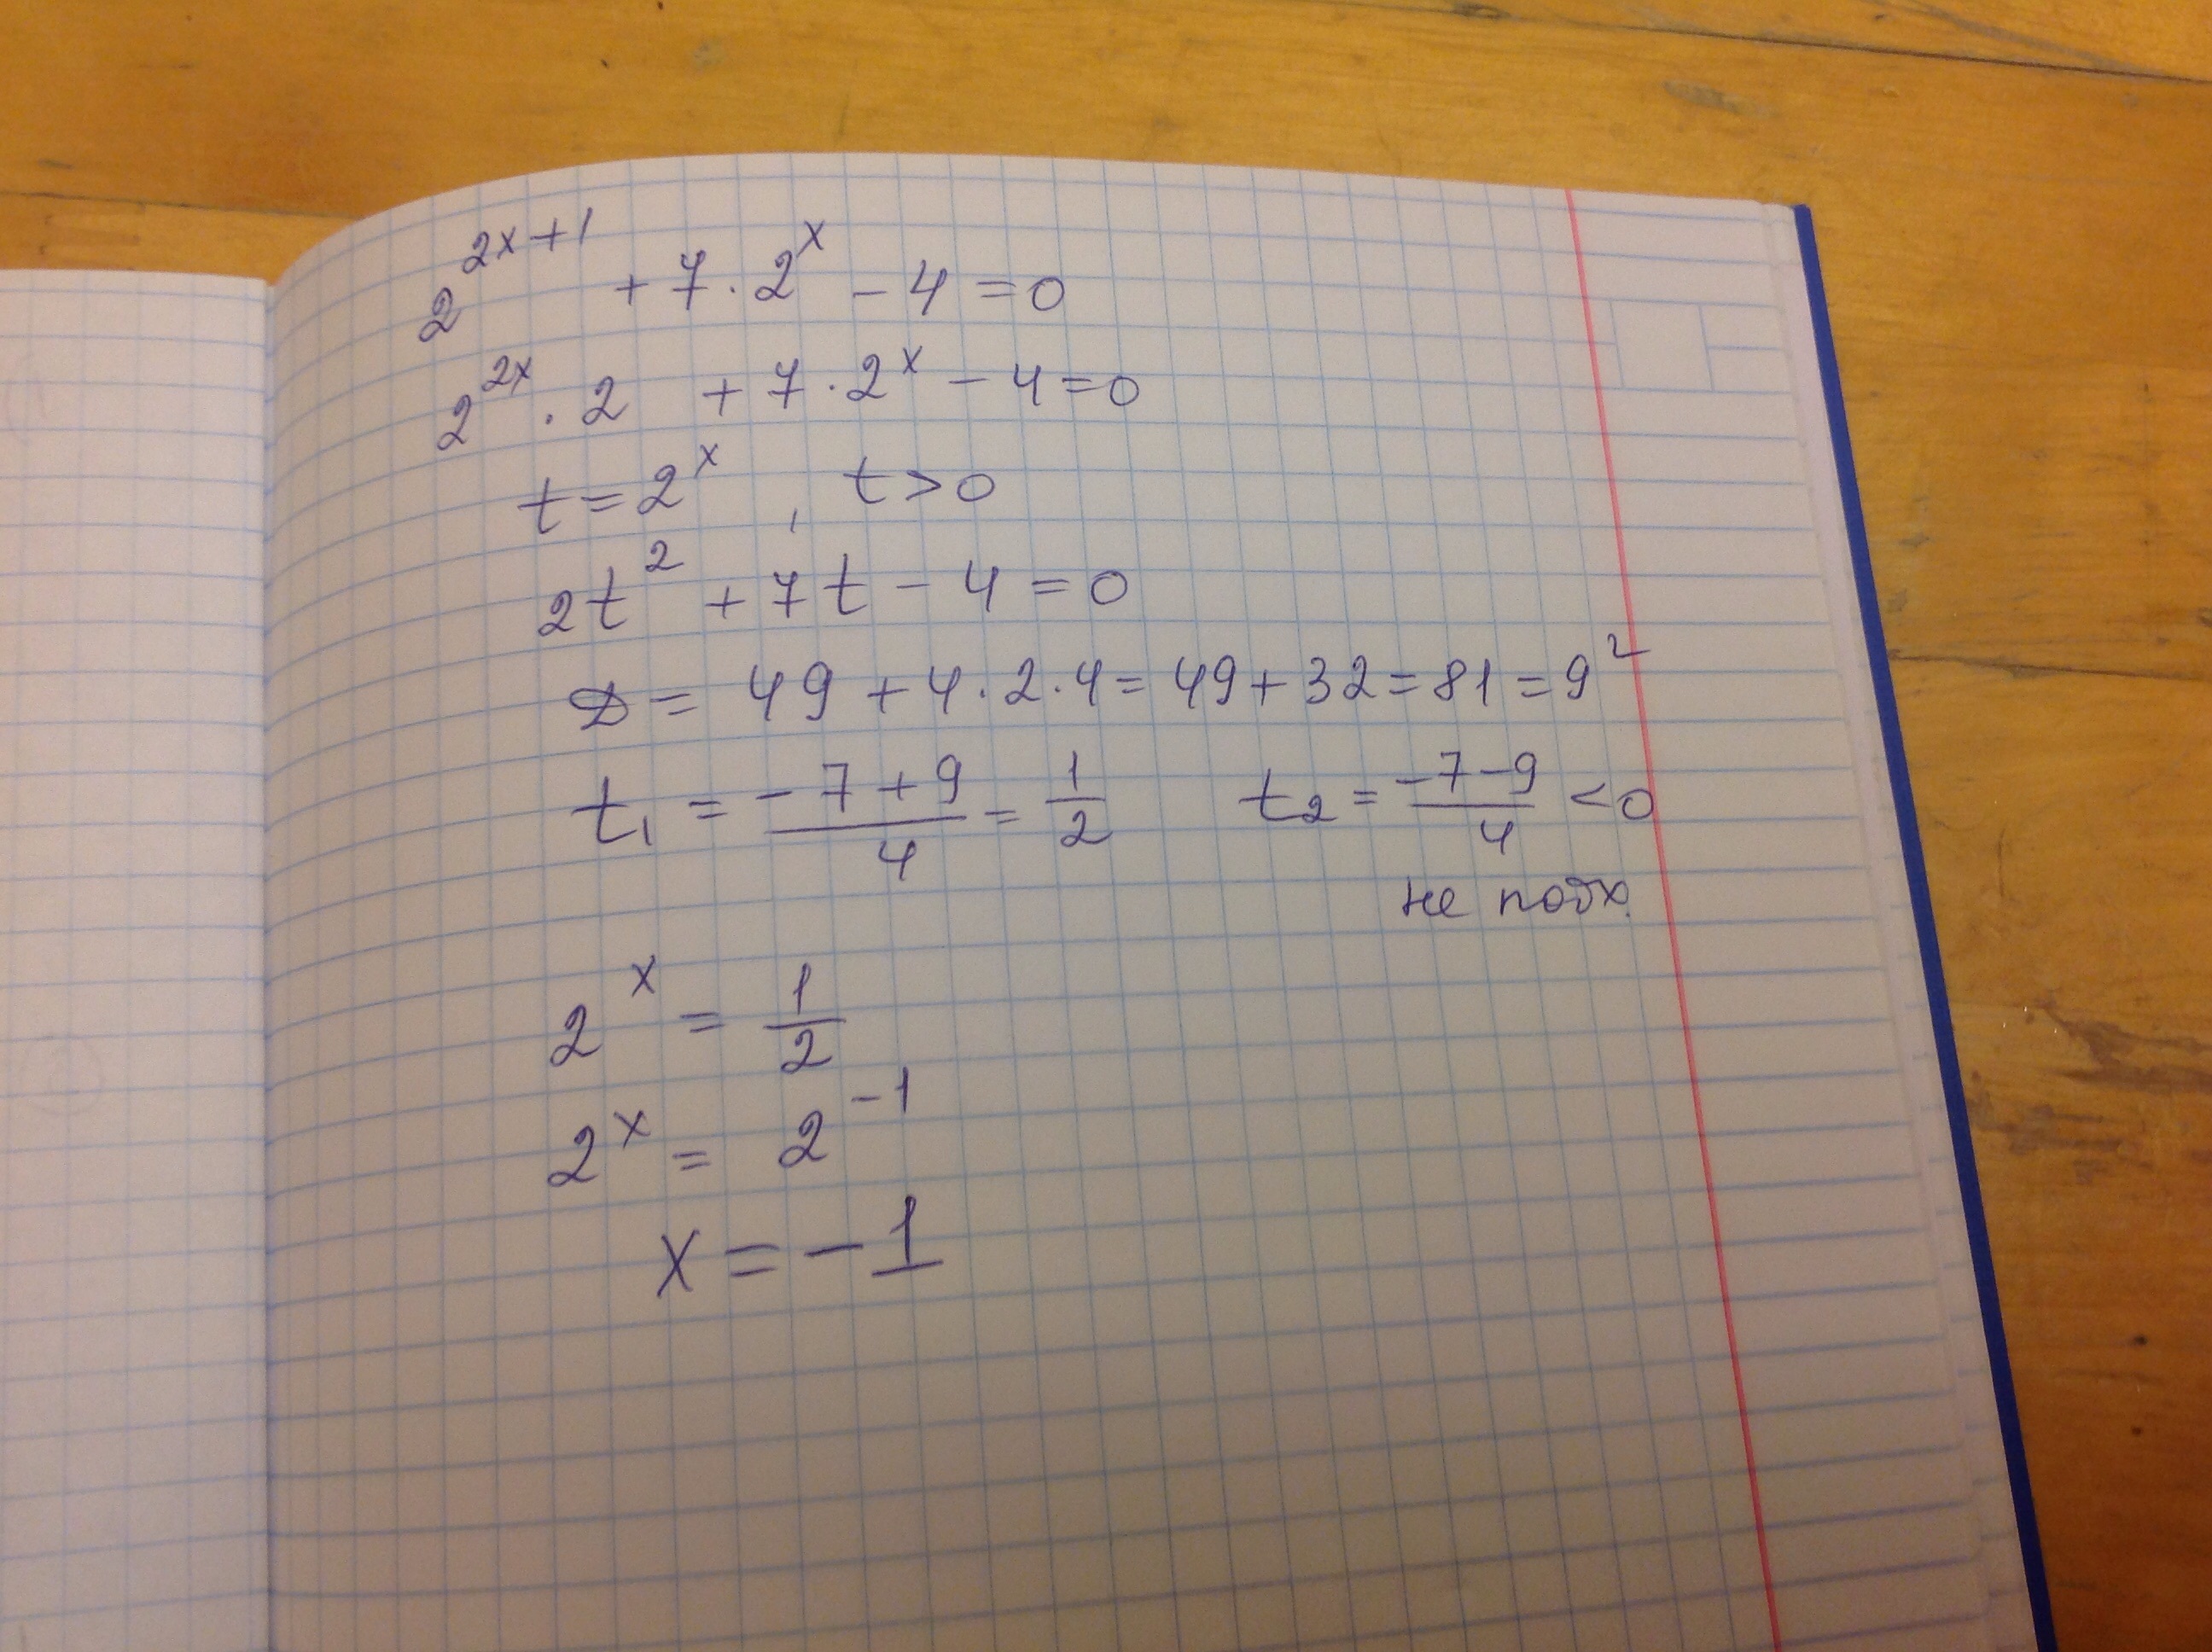 2^{2x+1} + 7 · 2^x − 4 = 0
2^{2x} · 2 + 7 · 2^x − 4 = 0
t = 2^x , t > 0
2t^2 + 7t − 4 = 0
D = 49 + 4 · 2 · 4 = 49 + 32 = 81 = 9^2
t_1 = \frac{-7+9}{4} = \frac{1}{2} t_2 = \frac{-7-9}{4} < 0
не подх.
2^x = \frac{1}{2}
2^x = 2^{-1}
x = −1